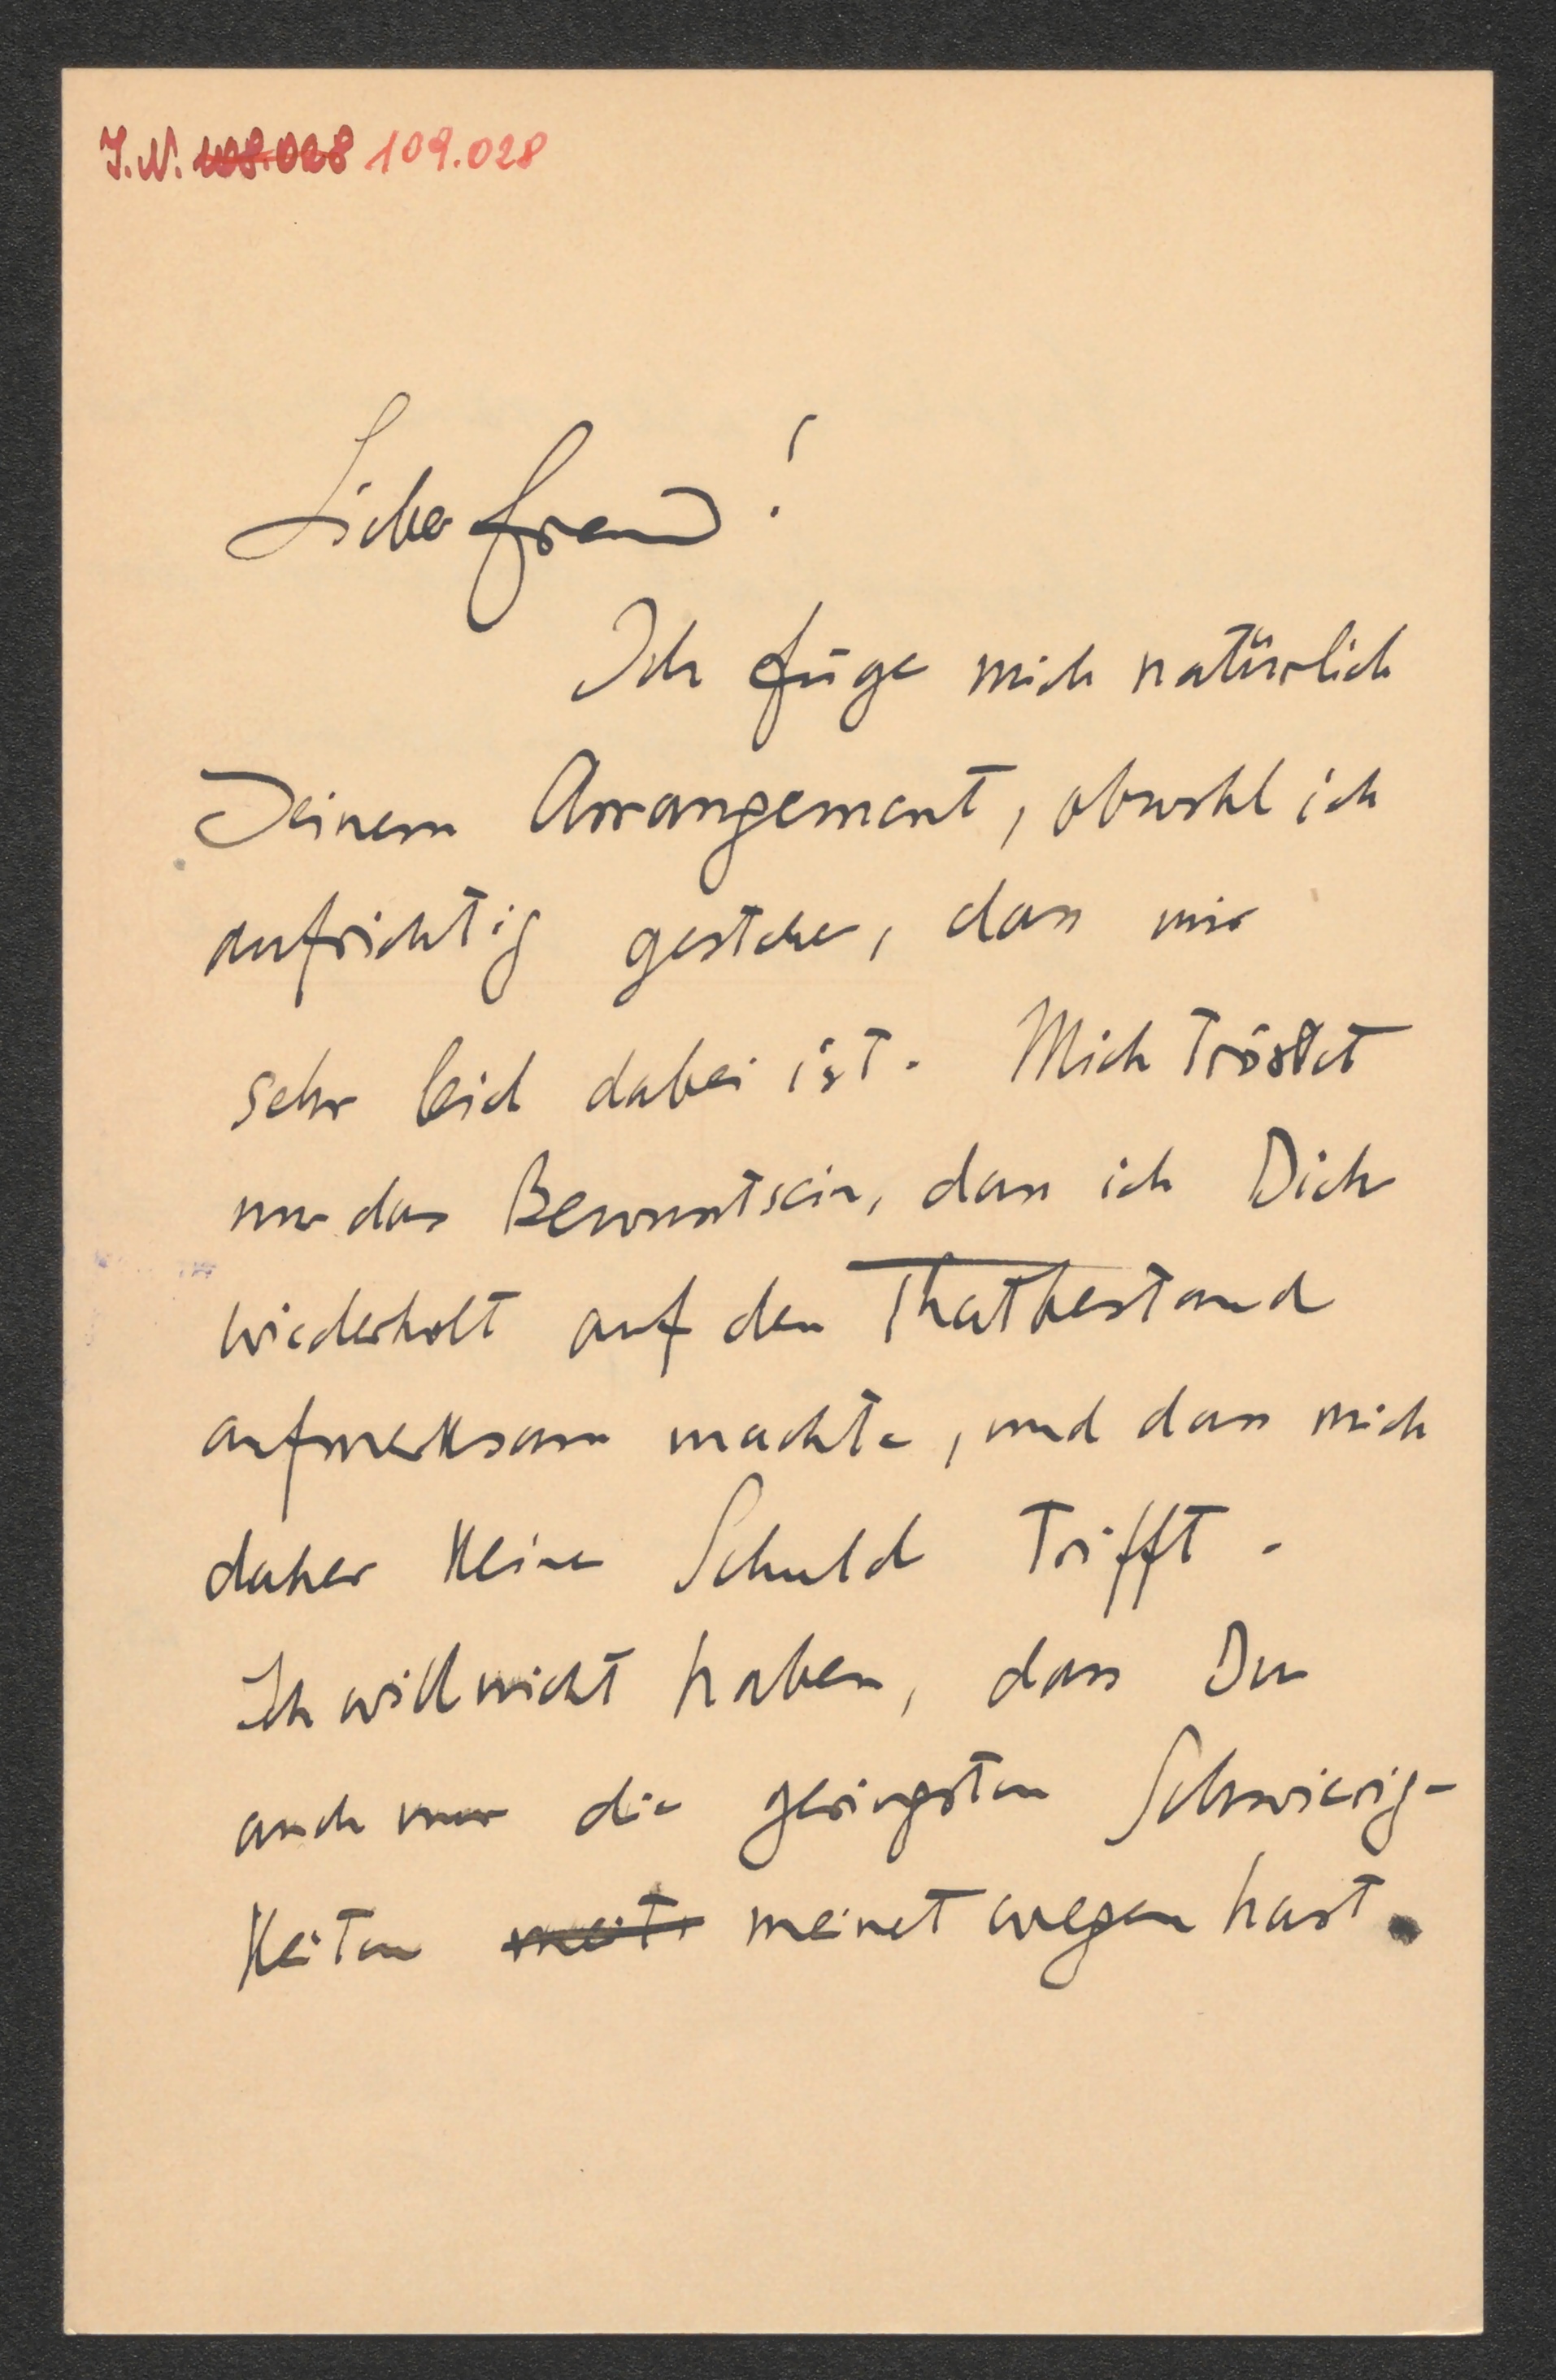 J.N. 108.028 109.028
Lieber Freund!
Ich füge mich natürlich
Deinem Arrangement, obwohl ich
aufrichtig gestehe, dass mir
sehr leid dabei ist. Mich tröstet
nur das Bewusstsein, dass ich Dich
wiederholt auf den Thatbestand
aufmerksam machte, und dass mich
daher keine Schuld trifft.
Ich will nicht haben, dass Du
auch nur die geringsten Schwierig-
keiten meinetwegen hast.